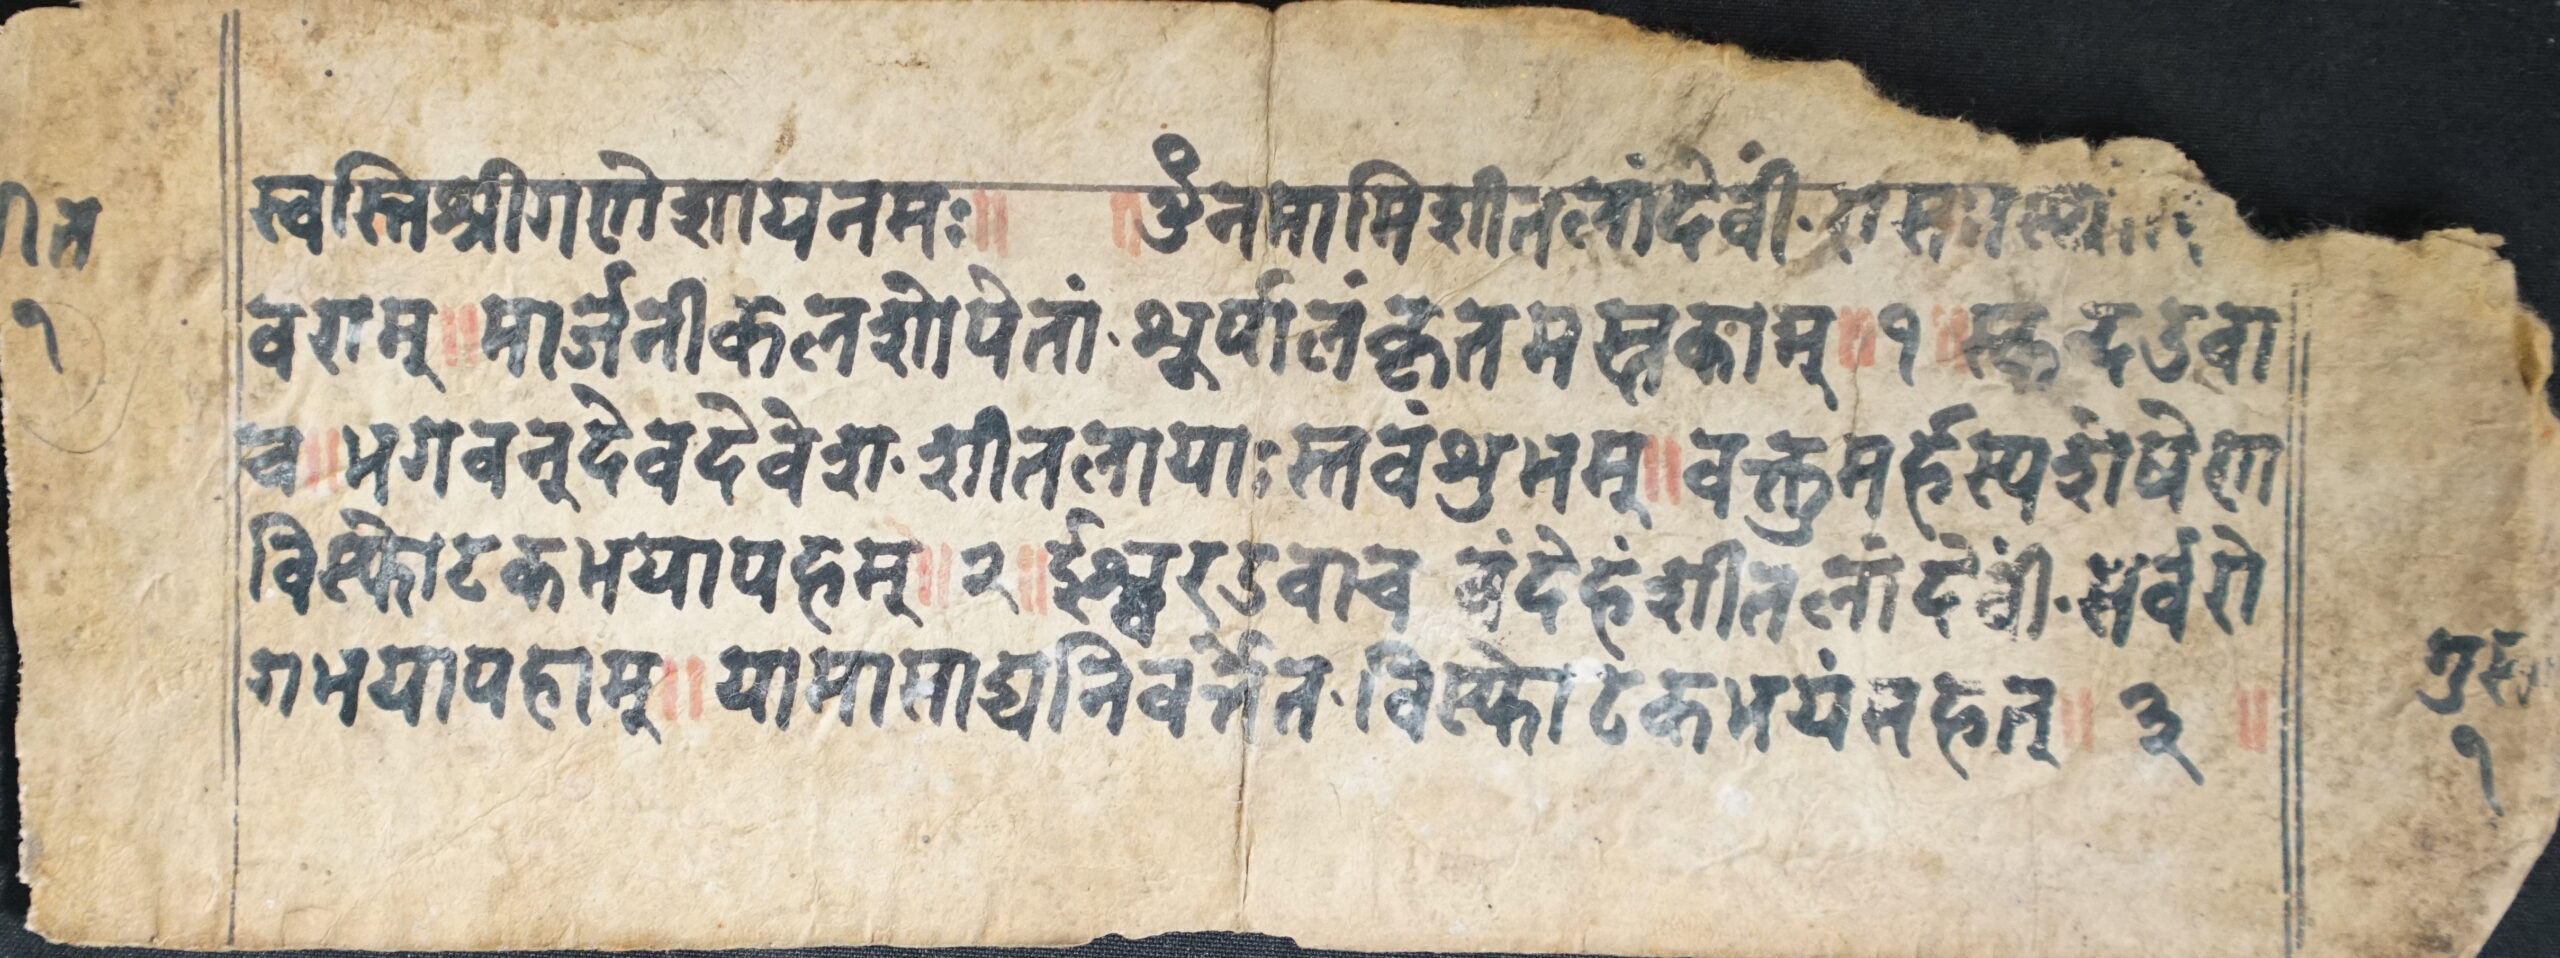 स्वस्तिश्रीगणेशायनमः॥ ॥ॐनमामिशीतलांदेवीं·रासभस्थां
वराम्॥मार्जनीकलशोपेतां·शूर्पालंकृतमस्तकाम्॥१॥स्कन्दउवा
च॥भगवन्देवदेवेश·शीतलायाःस्तवंशुभम्॥वक्तुमर्हस्यशेषेण
विस्फोटकभयापहम्॥२॥ईश्वरउवाच वंदेहंशीतलांदेवीं·सर्वरो
गभयापहाम्॥यामासाद्यनिवर्त्तेत·विस्फोटकभयंमहत्॥ ३ ॥
१
१